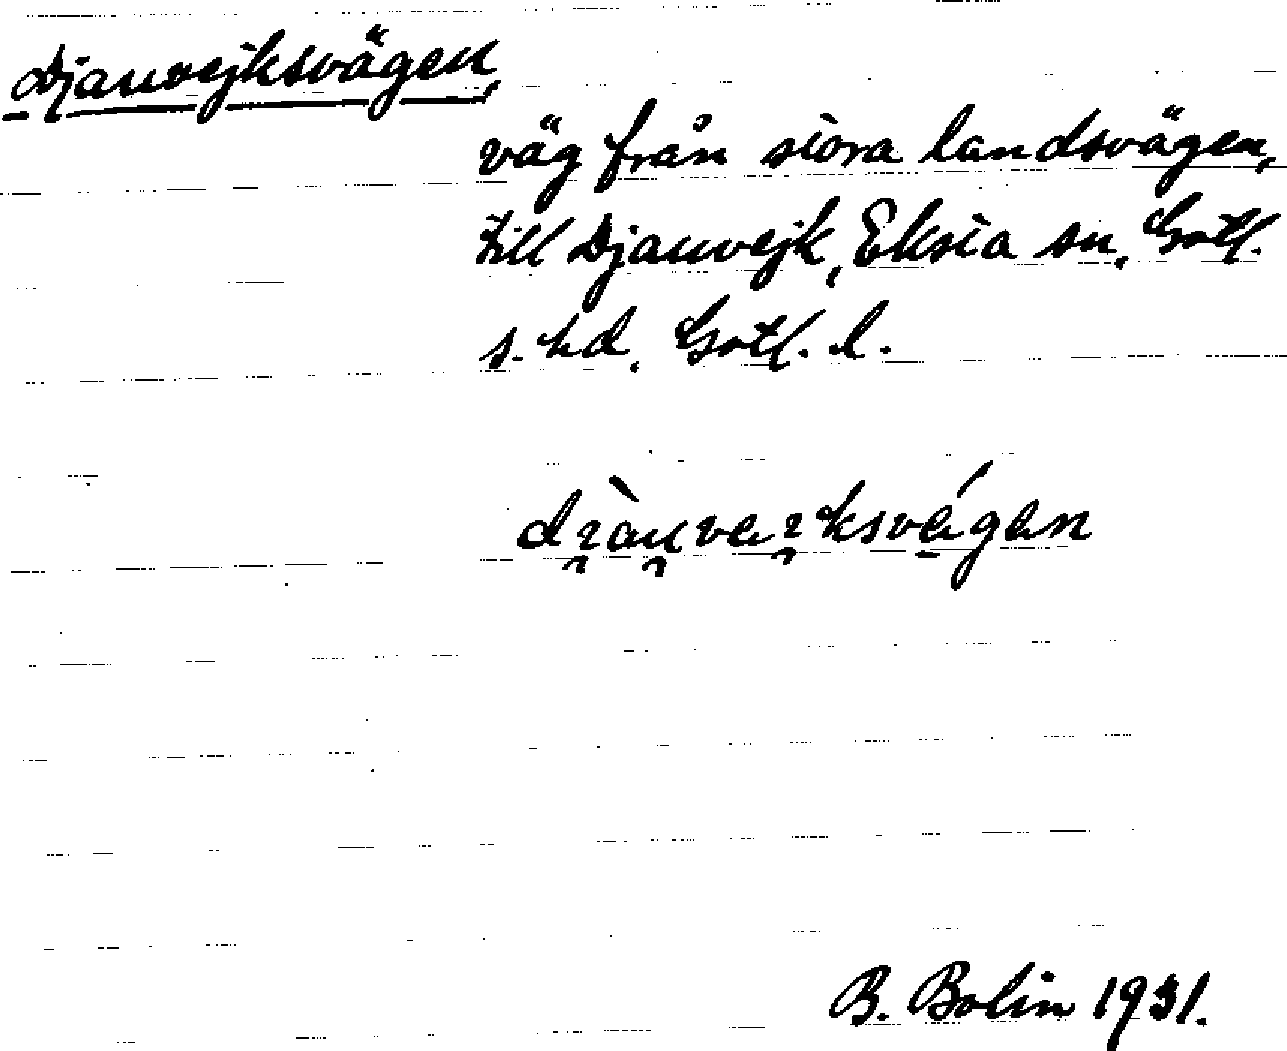 Djauvejksvägen,
väg från stora landsvägen,
till Djauvejk, Eksta sn, Gotl.
s. hd, Gotl. l.
B. Bolin 1931.